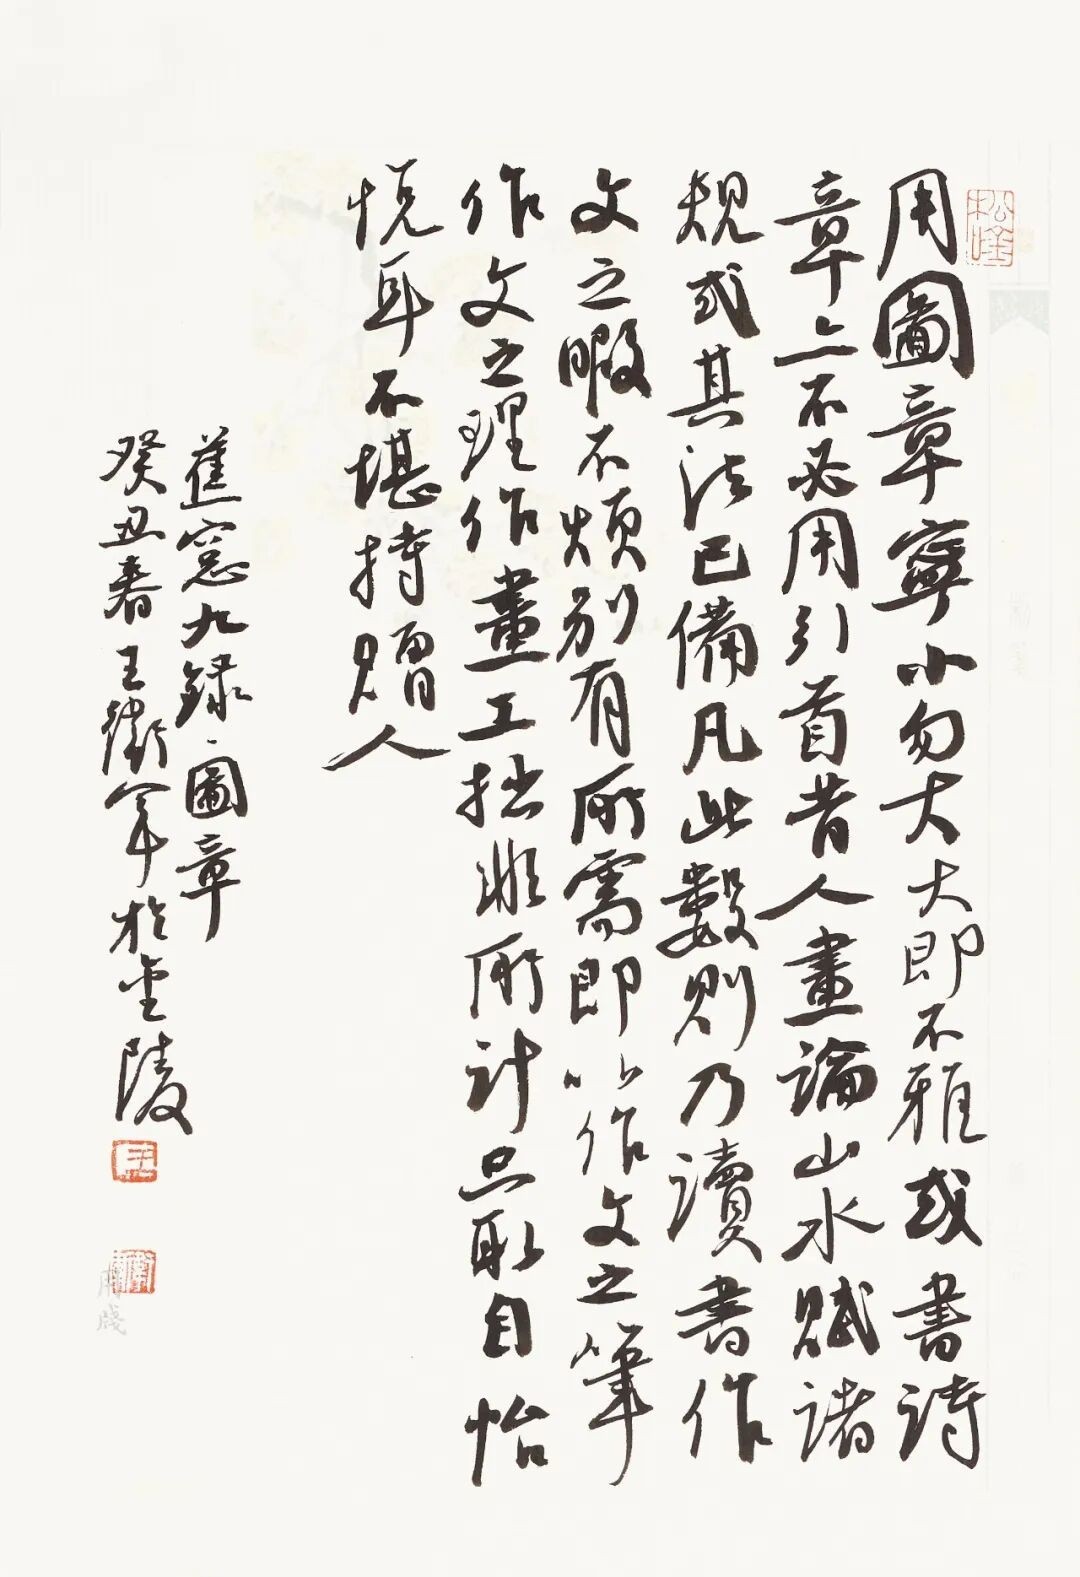 用圖章寧小勿大大即不雅或書詩
章亦不必用引首昔人畫論山水賦諸
規式其法已備凡此數則乃讀書作
文之暇不煩別有所需即以作文之筆
作文之理作畫工拙非所計只取自怡
悅耳不堪持贈人
蕉窓九錄圖章
癸丑春王衛軍於金陵
王
用箋